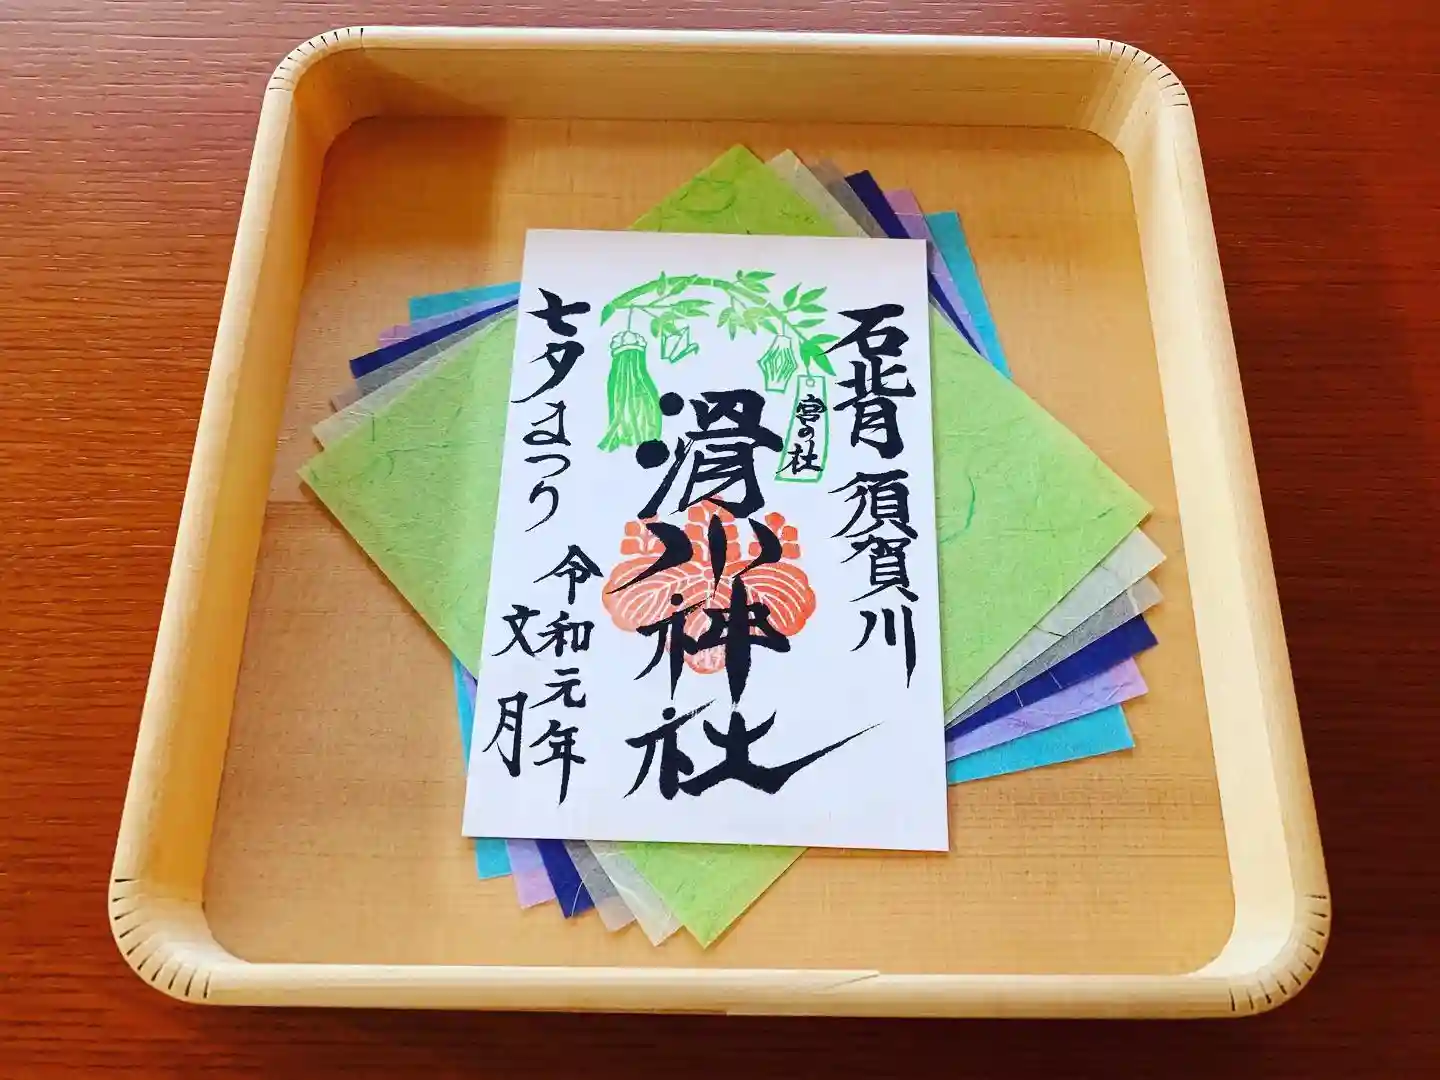 石背 須賀川
宮の社
滑川神社
七夕まつり
令和元年
文月